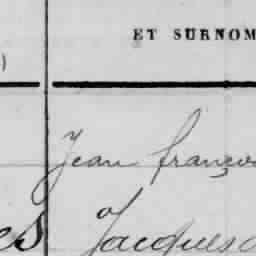 ET SURNOM
)
Jean françoi
es Jacques